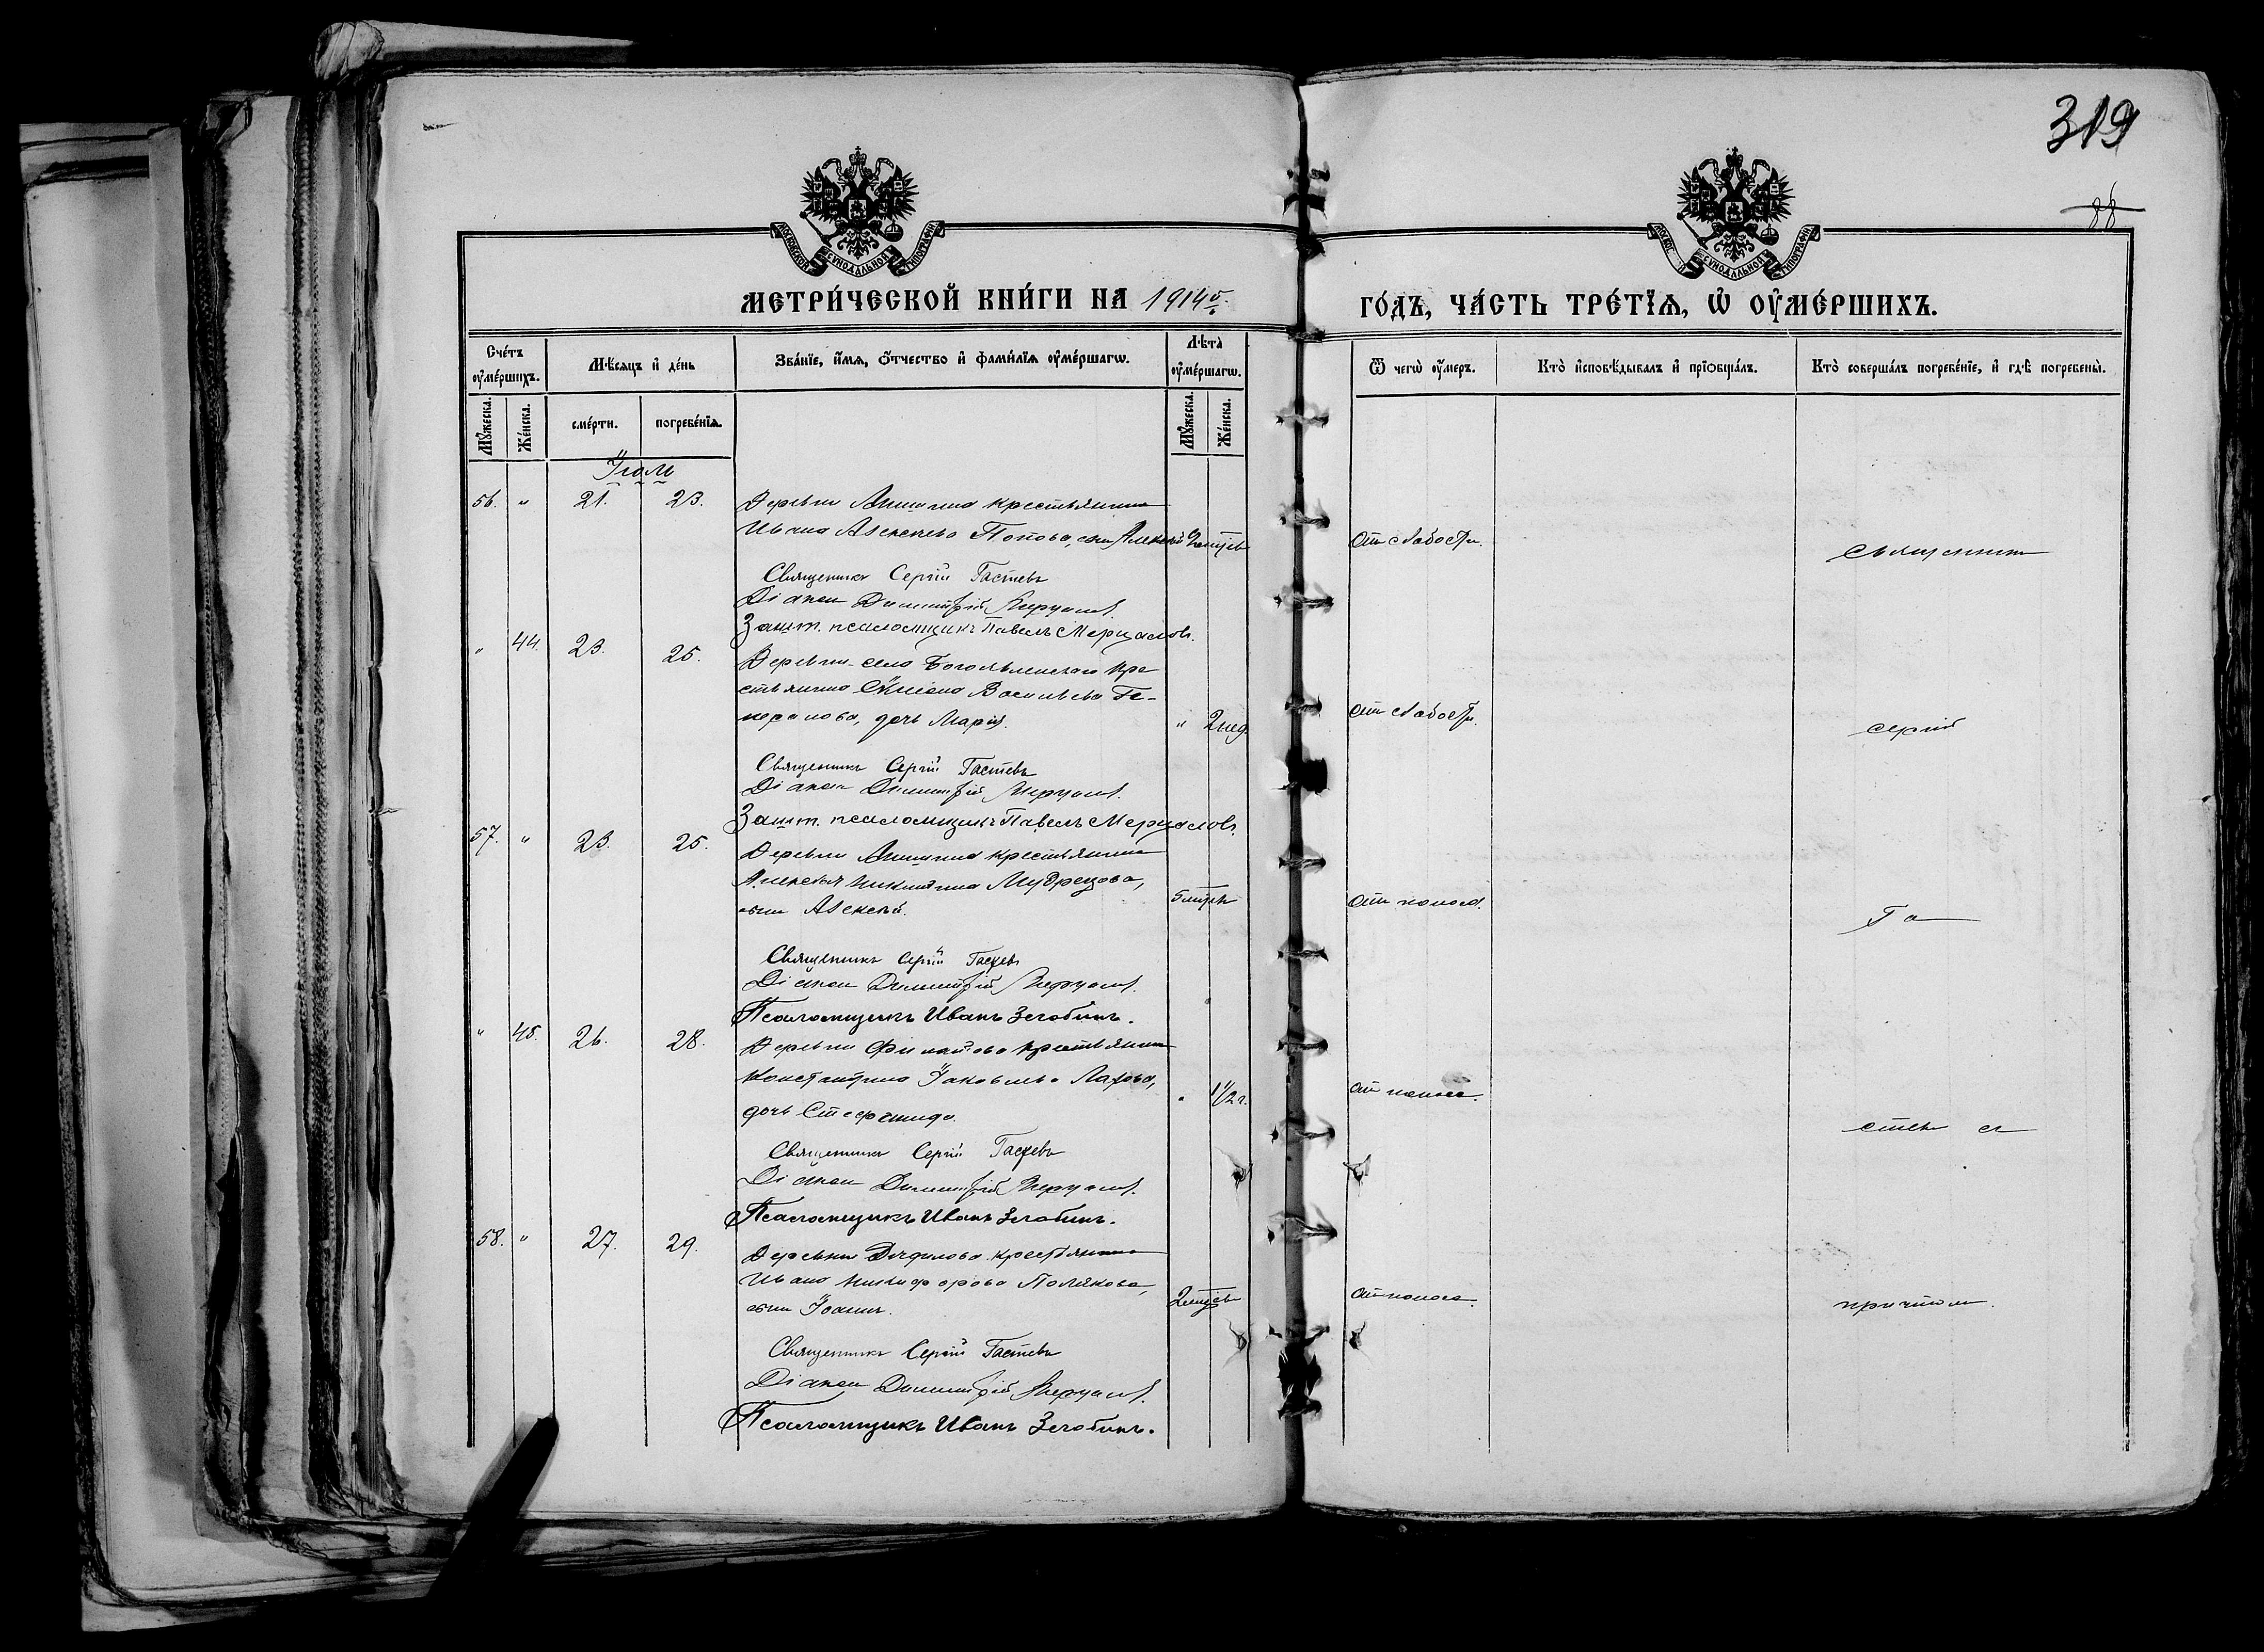 319
88
МОСКОВСКОЙ СѴНОДАЛЬНОЙ ТИПОГРАФІИ
МЕТРИ́ЧЕСКОЙ КНИ́ГИ НА 1914й
ГО́ДЪ, ЧА́СТЬ ТРЕ́ТЇѦ, Ѡ҆ ОУ҆МЕ́РШИХЪ.
Сче́тъ оу҆ме́ршихъ.
Мѣ́сяцъ и҆ де́нь
Зва́нїе, и҆́мѧ, ѻ҆́тчество и҆ фами́лїѧ оу҆ме́ршагѡ.
Лѣта̀ оу҆ме́ршагѡ.
Ѿ чегѡ̀ оу҆́меръ.
Кто̀ и҆сповѣ́дывалъ и҆ прїобща́лъ.
Кто̀ соверша́лъ погребе́нїе, и҆ гдѣ̀ погребены̀.
Мꙋ́жеска.
Же́нска.
сме́рти.
погребе́нїѧ.
Мꙋ́жеска.
Же́нска.
Іюль
56. " 21. 23. Деревни Анишина крестьянина
Ивана Алексѣева Попова, сын Алексѣй От слабости. Священник
Священникъ Сергій Гастевъ
Діакон Димитрій Мерцалов.
Зашт. псаломщикъ Павелъ Мерцаловъ.
" 44. 23. 25. Деревни села Богоявленскаго кре
стьянина Васильева Ге-
нералова, дочь Марія. " 2 нед. От слабости. Сергій
Священникъ Сергій Гастевъ
Діакон Димитрій Мерцалов.
Зашт. псаломщикъ Павелъ Мерцаловъ.
57. " 23. 25. Деревни Анишина крестьянина
Алексѣя Никитина Мудрецова,
сын Алексѣй. 5 мѣсяц. От поноса. Га
Священникъ Сергій Гастевъ
Діакон Димитрій Мерцалов.
Псаломщикъ Иванъ Злобинъ.
" 45. 26. 28. Деревни Филатова крестьянина
Константина Іаковлева Лахова,
дочь Стефанида. " 1 1/2 г. От поноса. стев съ
Священникъ Сергій Гастевъ
Діакон Димитрій Мерцалов.
Псаломщикъ Иванъ Злобинъ.
58. " 27. 29. Деревни крестьянина
Ивана Никифорова Полякова,
сын Іоанн. 2 мѣсяц. От поноса. причтом.
Священникъ Сергій Гастевъ
Діакон Димитрій Мерцалов.
Псаломщикъ Иванъ Злобинъ.